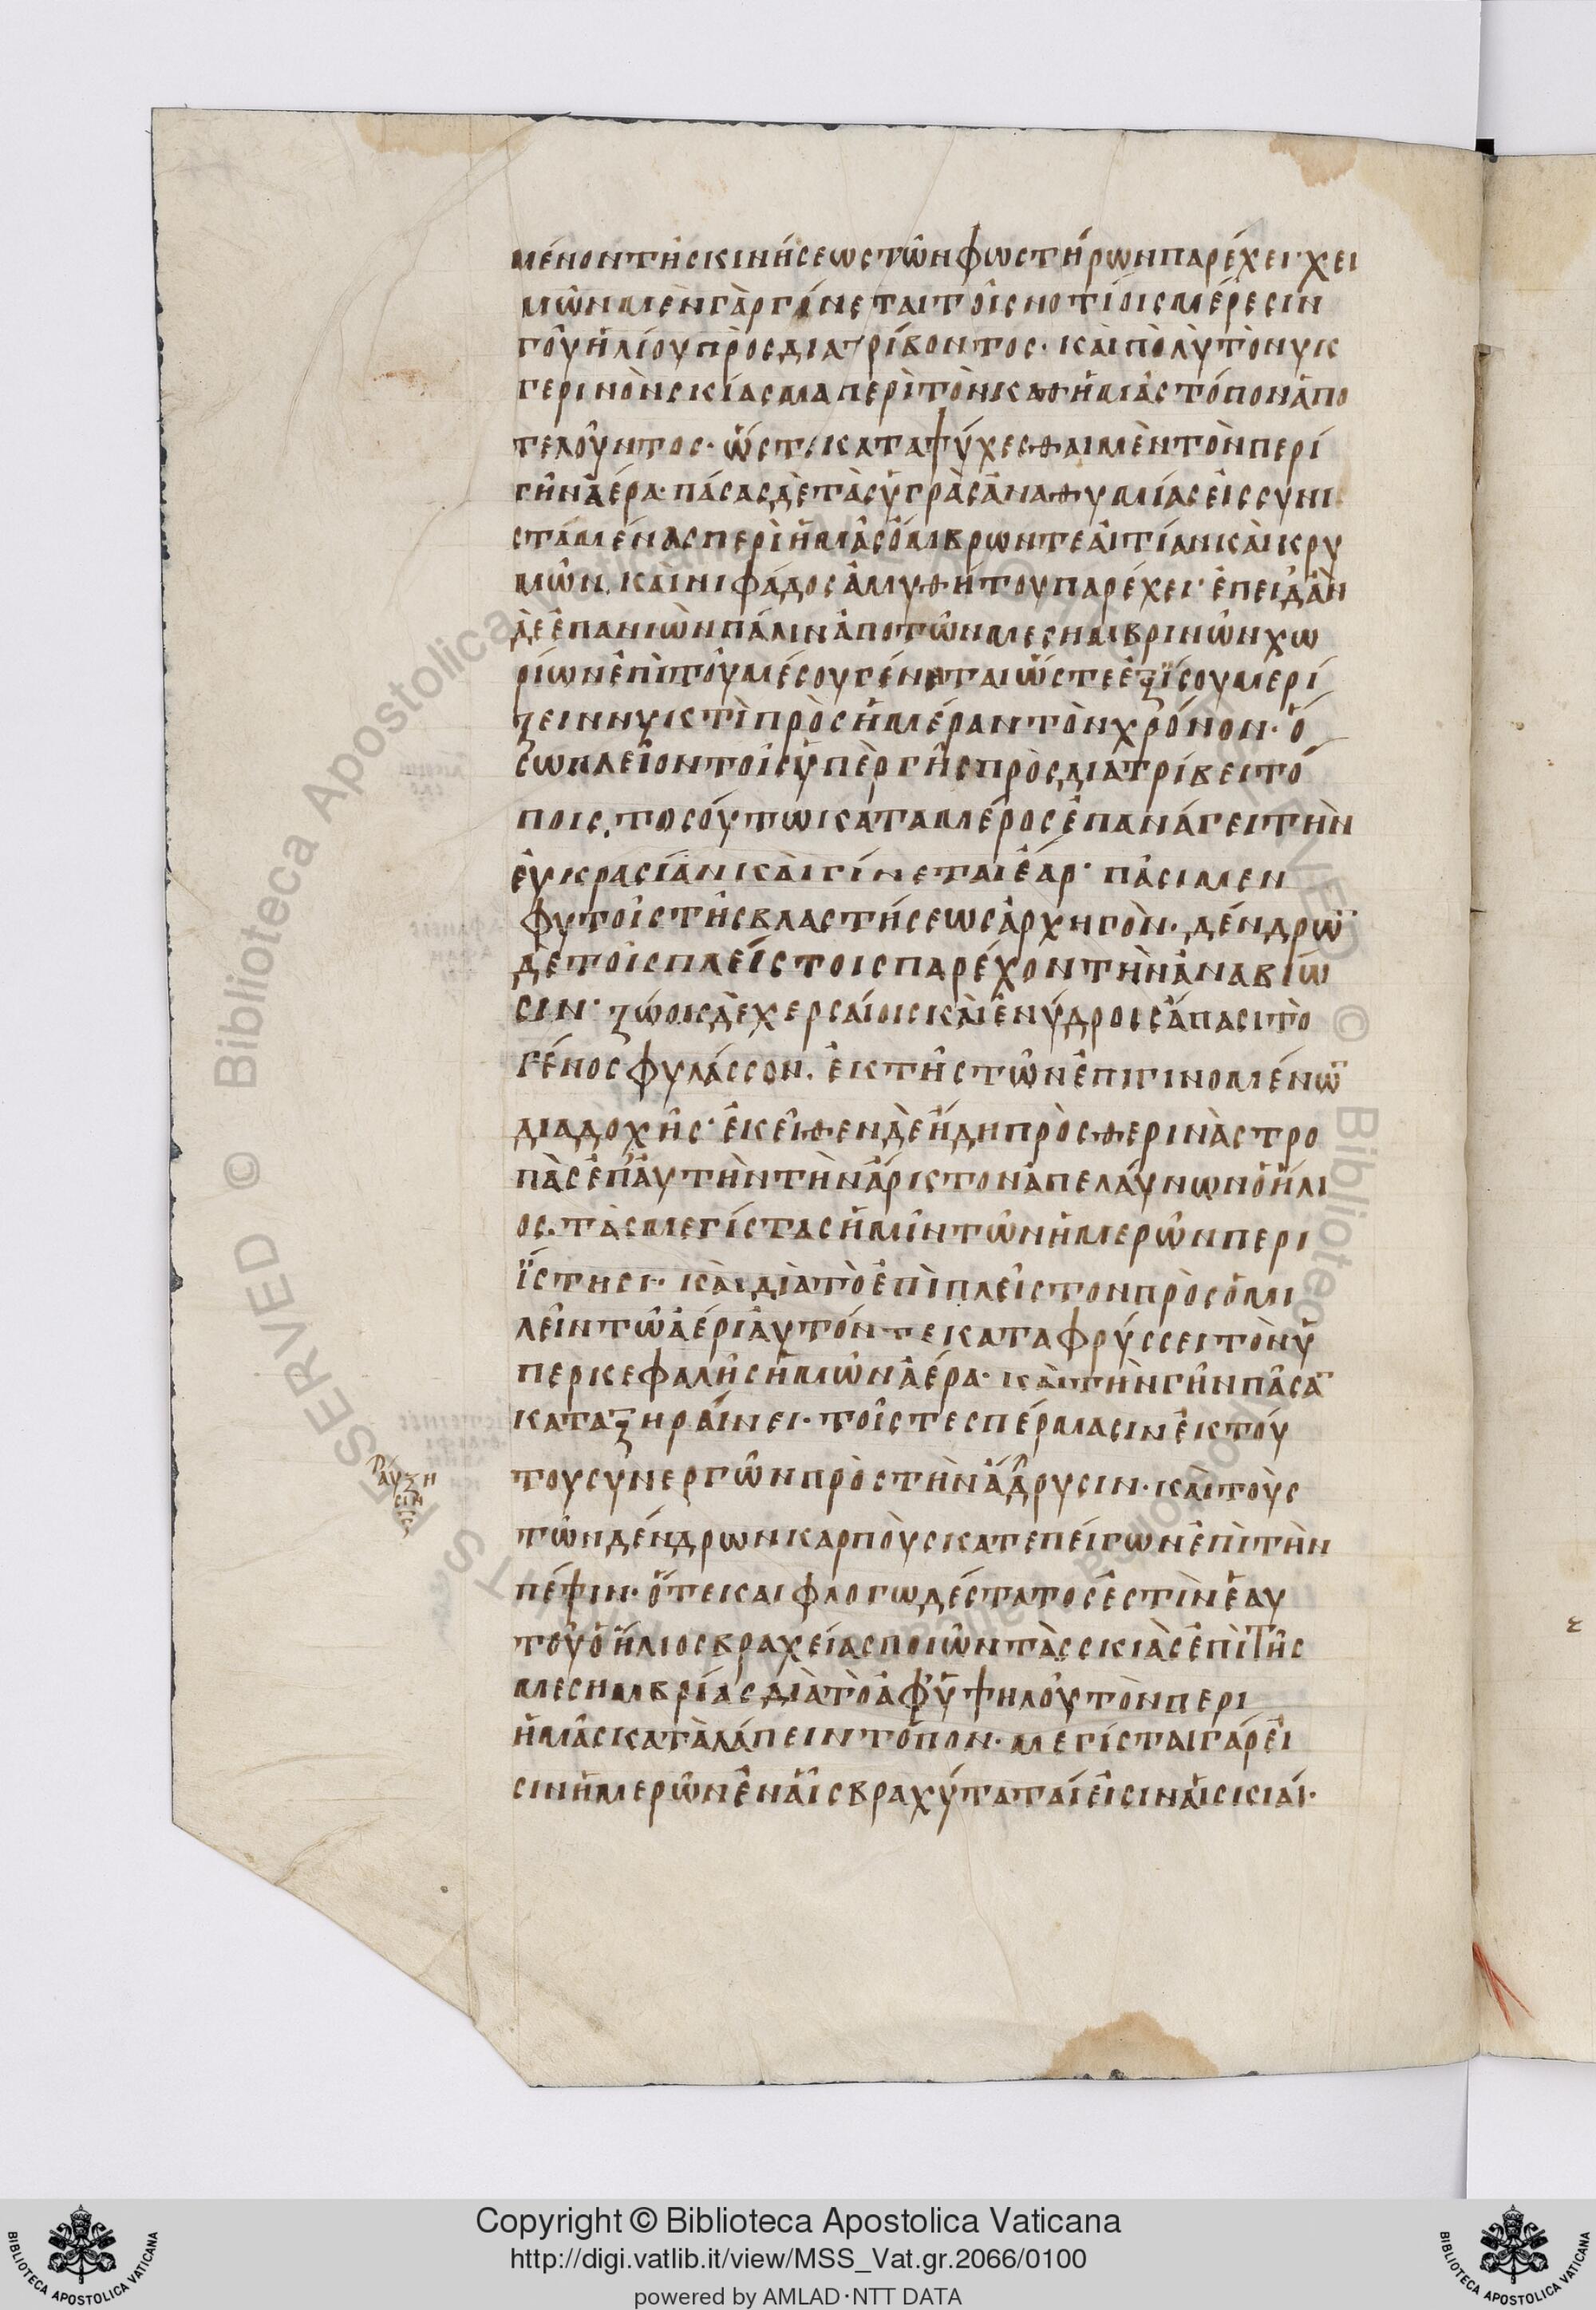 μένον τῆς κινήσεως τῶν φωστήρων παρέχει· χει
μὼν μὲν γὰρ γίνεται τοῖς νοτίοις μέρεσιν
τοῦ ἡλίου προσδιατρίβοντος· καὶ πολὺ τὸ νυκ
τερινὸν σκίασμα περὶ τὸν καθ ἡμᾶς τόπον ἀπο
τελοῦντος· ὥστε καταψύχεσθαι μὲν τὸν περὶ
γῆν ἀέρα· πάσας δὲ τὰς ὑγρὰς ἀναθυμίασεις συνι
σταμένας περὶ ἡμᾶς ὄμβρων τε αἰτίαν καὶ κρυ
μῶν, καὶ νιφάδος ἀμυθήτου παρέχει· ἐπειδὰν
δὲ ἐπανιὼν πάλιν ἀπο τῶν μεσημβρινῶν χω
ρίων ἐπὶ τοῦ μέσου γένηται ὥστε ἐξ ἴσου μερί
ζειν νυκτὶ πρὸς ἡμέραν τὸν χρόνον· ὅ
σω πλεῖον τοῖς ὑπὲρ γῆς προσδιατρίβει τό
ποις, τοσούτω κατα μέρος ἐπανάγει τὴν
εὐκρασίαν καὶ γίνεται ἔαρ· πᾶσι μεν
φυτοῖς τῆς βλαστήσεως ἀρχηγὸν· δένδρω̄
δὲ τοῖς πλείστοις παρέχον τὴν ἀναβίω
σιν· ζώοις δὲ χερσαίοις καὶ ἐνύδροις ἅπασι τὸ
γένος φυλάσσον, ἐκ τῆς τῶν ἐπιγινομένω̄
διαδοχῆς· ἐκεῖθεν δὲ ἤδη πρὸς θερινὰς τρο
πὰς ἐπ' αὐτὴν τὴν ἄρκτον ἀπελαύνων ὁ ἥλι
ος. τὰς μεγίστας ἡμῖν τῶν ἡμερῶν περι
ΐστησι· καὶ διὰ τὸ ἐπὶ πλεῖστον προσομι
λεῖν τῶ ἀέρι αὐτόν τε καταφρύσσει τὸν ὑ
περ κεφαλῆς ἡμῶν ἀέρα· καὶ τὴν γῆν πᾶσᾱ
καταξηραίνει· τοῖς τε σπέρμασιν ἐκ τού
του συνεργῶν πρὸς τὴν ἅδρυσιν· καὶ τοὺς
αυξη
σιν
τῶν δένδρων καρποὺς κατεπείγων ἐπὶ τὴν
πέψιν· ὅτε και φλογωδέστατος ἐστὶν ἑαυ
τοῦ ὁ ἥλιος βραχείας ποιῶν τὰς σκιὰς ἐπὶ τῆς
μεσημβρίας διὰ τὸ ἀφ ὑψηλοῦ τὸν περι
ἡμᾶς καταλάπειν τόπον· μεγίσται γάρ εἰ
σιν ἡμερῶν ἐν αἷς βραχύταταί εἰσιν αἱ σκιαί·
Copyright © Biblioteca Apostolica Vaticana
http://digi.vatlib.it/view/MSS_Vat.gr.2066/0100
powered by AMLAD·NTT DATA